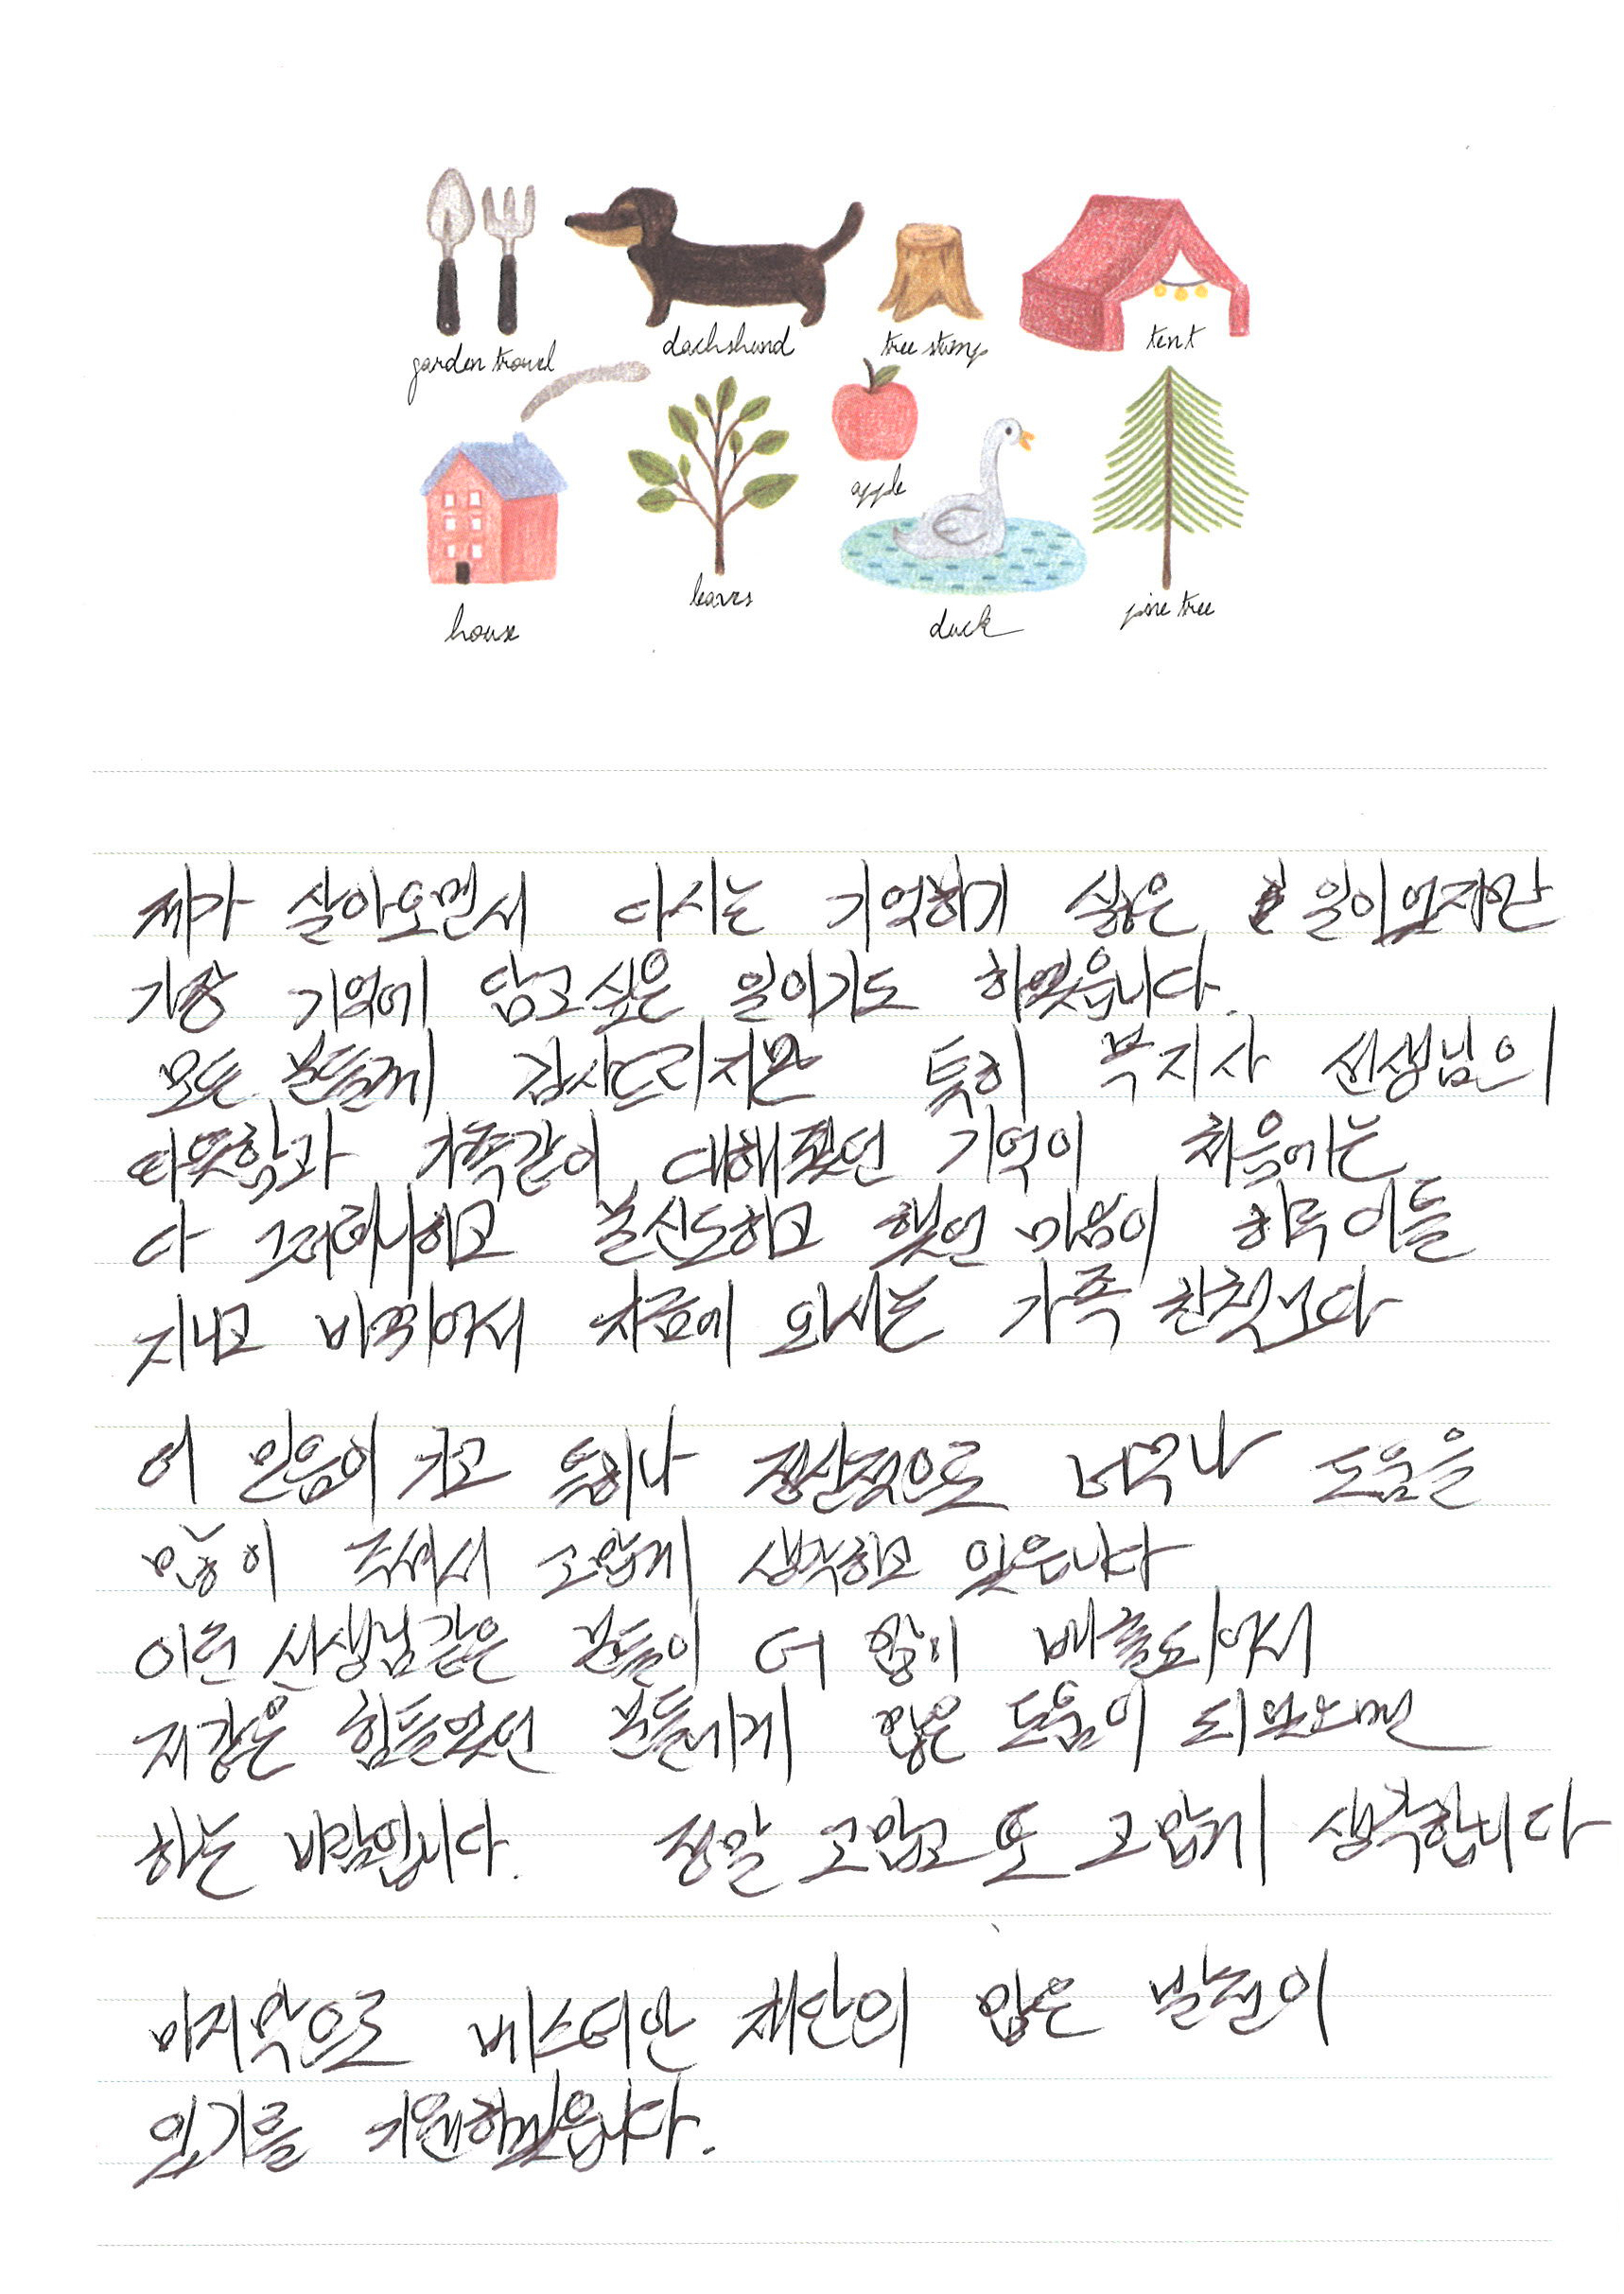 garden trowel
dachshund
tree stump
tent
apple
house
leaves
duck
pine tree
제가 살아오면서 다시는 기억하기 싫은 일이였지만
가장 기억에 담고싶은 일이기도 하였습니다.
모든 분들께 감사드리지만 특히 복지사 선생님의
따뜻함과 가족같이 대해줬던 기억이 처음에는
다 그러려니하고 불신도하고 했던 마음이 하루 이틀
지나고 바뀌어서 지금에 와서는 가족 친척보다
더 믿음이 가고 특히나 정신적으로 너무나 도움을
많이 주셔서 고맙게 생각하고 있습니다
이런 선생님같은 분들이 더 많이 배출되어서
저같은 힘들었던 분들에게 많은 도움이 되었으면
하는 바람입니다. 정말 고맙고 또 고맙게 생각합니다
마지막으로 베스티안 재단의 많은 발전이
있기를 기원하겠습니다.